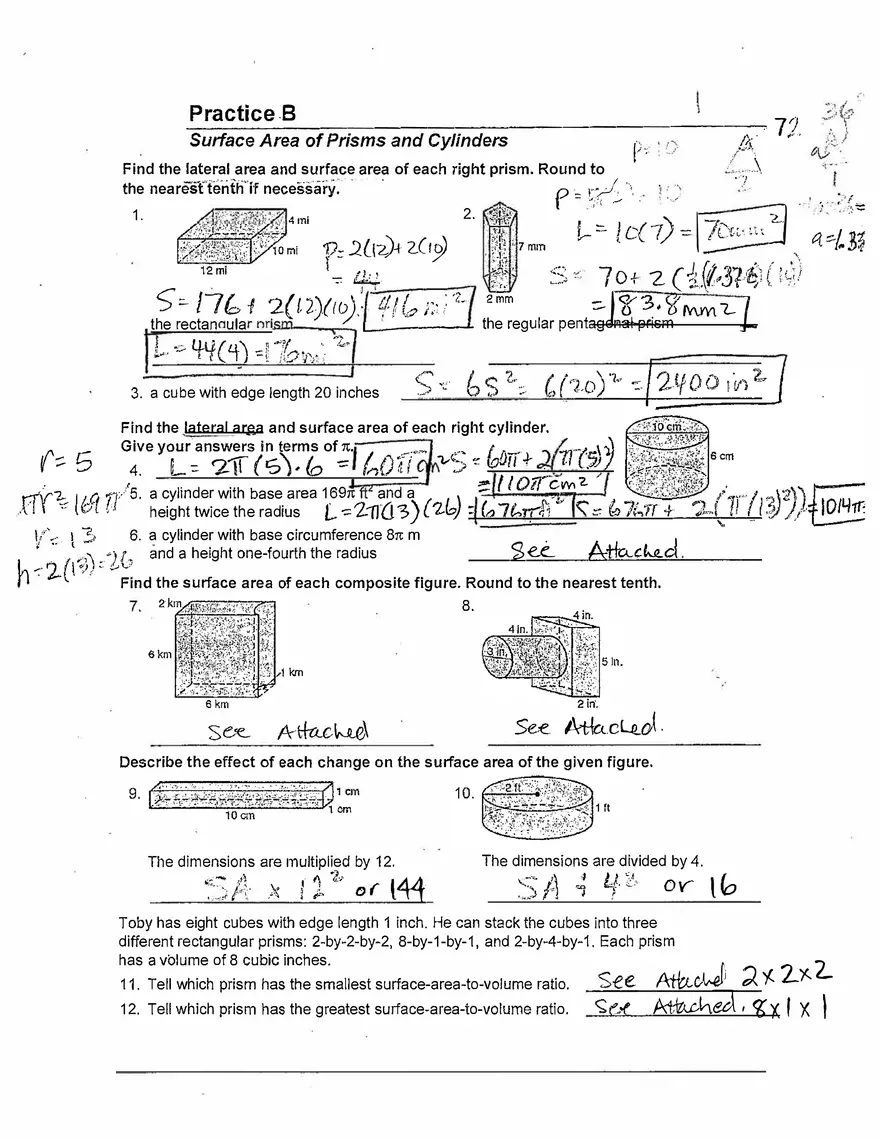 Practice B
Surface Area of Prisms and Cylinders
72.
36°
P=10
2
1
a=1.38
Find the lateral area and surface area of each right prism. Round to
the nearest tenth if necessary.
1.
4 mi
10 mi
12 mi
P=2(12)+2(10)
= 44
S=176+2(12)(10)= 416 mi²
the rectangular prism
L=44(4)=176mi²
2.
7 mm
2 mm
L=10(7)=70mm²
S= 70+2(
= 83.8mm2
the regular pentagonal prism
3. a cube with edge length 20 inches
S= 6S²= 6(20)²=2400 in²
Find the lateral area and surface area of each right cylinder.
Give your answers in terms of π.
r=5
4. L=2π(5)·6=60π cm² S=60π+2(π(5)²)
=110π cm2
10 cm
6 cm
πr²=169π
5. a cylinder with base area 169π ft² and a
height twice the radius L=2π(13)(26)=676π ft² S=676π+2(π(13)²)=1014π
r=13
h=2(13)=26
6. a cylinder with base circumference 8π m
and a height one-fourth the radius See Attached.
Find the surface area of each composite figure. Round to the nearest tenth.
7. 2 km
6 km
1 km
6 km
See Attached
8.
4 in.
4 in.
3 in.
5 in.
2 in.
See Attached.
Describe the effect of each change on the surface area of the given figure.
9.
1 cm
1 cm
10 cm
10.
2 ft
1 ft
The dimensions are multiplied by 12.
SA x 12² or 144
The dimensions are divided by 4.
SA ÷ 4² or 16
Toby has eight cubes with edge length 1 inch. He can stack the cubes into three
different rectangular prisms: 2-by-2-by-2, 8-by-1-by-1, and 2-by-4-by-1. Each prism
has a volume of 8 cubic inches.
11. Tell which prism has the smallest surface-area-to-volume ratio. See Attached 2x2x2
12. Tell which prism has the greatest surface-area-to-volume ratio. See Attached. 8x1x1